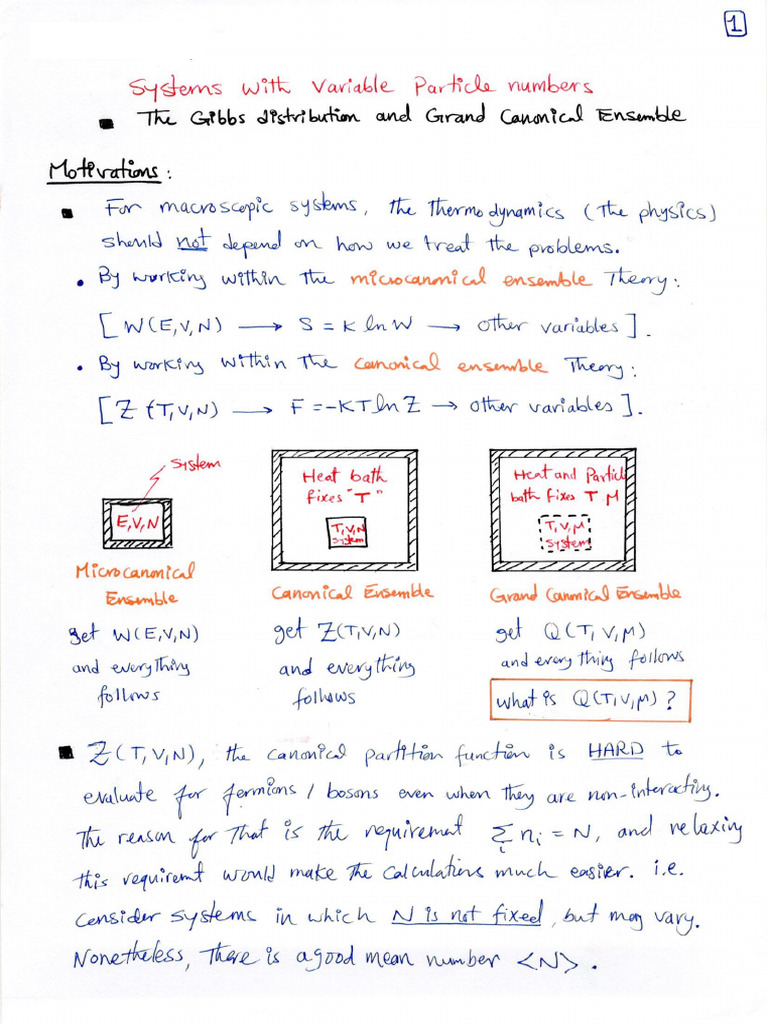 1
Systems with Variable Particle numbers
▪ The Gibbs distribution and Grand Canonical Ensemble
Motivations:
▪ For macroscopic systems, the Thermodynamics (The physics)
should not depend on how we treat the problems.
• By working within the microcanonical ensemble Theory:
[ W(E,V,N) → S = K ln W → other variables ].
• By working within the canonical ensemble Theory:
[ Z (T,V,N) → F = -KT ln Z → other variables ].
System
E,V,N
Microcanonical
Ensemble
get W(E,V,N)
and everything
follows
Heat bath
fixes "T"
T,V,N
system
Canonical Ensemble
get Z(T,V,N)
and everything
follows
Heat and Particle
bath fixes T M
T,V,M
system
Grand Canonical Ensemble
get Q(T,V,M)
and everything follows
what is Q(T,V,M)?
▪ Z(T,V,N), the canonical partition function is HARD to
evaluate for fermions / bosons even when they are non-interacting.
The reason for That is the requiremat ∑i ni = N, and relaxing
this requiremt would make the calculations much easier. i.e.
consider systems in which N is not fixed, but may vary.
Nonetheless, There is a good mean number <N>.